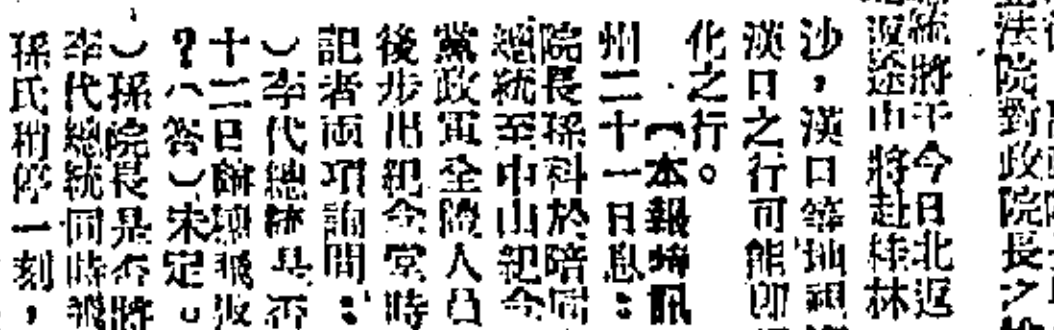 法院對政院長之
統將于今日北返
返途中將赴桂林
沙，漢口等地視
漢口之行可能卽
化之行。
（本報 訊
州二十一日息：
院長孫科於陪同
總統至中山紀念
黨政軍全體人員
後步出紀念堂時
記者両項詢問：
）李代總統是否
十二日離穗飛返
？（答）未定。
）孫院長是否將
李代總統同時飛
孫氏稍停一刻，